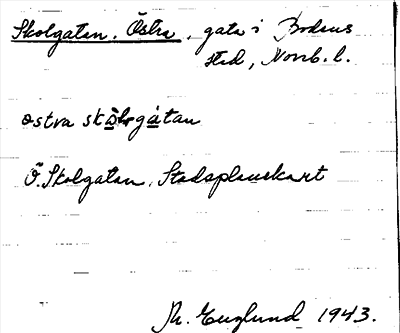 Skolgatan, Östra, gata i Bodens
stad, Norrb. l.
ostra skolgatan
Ö. Skolgatan, Stadsplanekart
Th. Englund 1943.